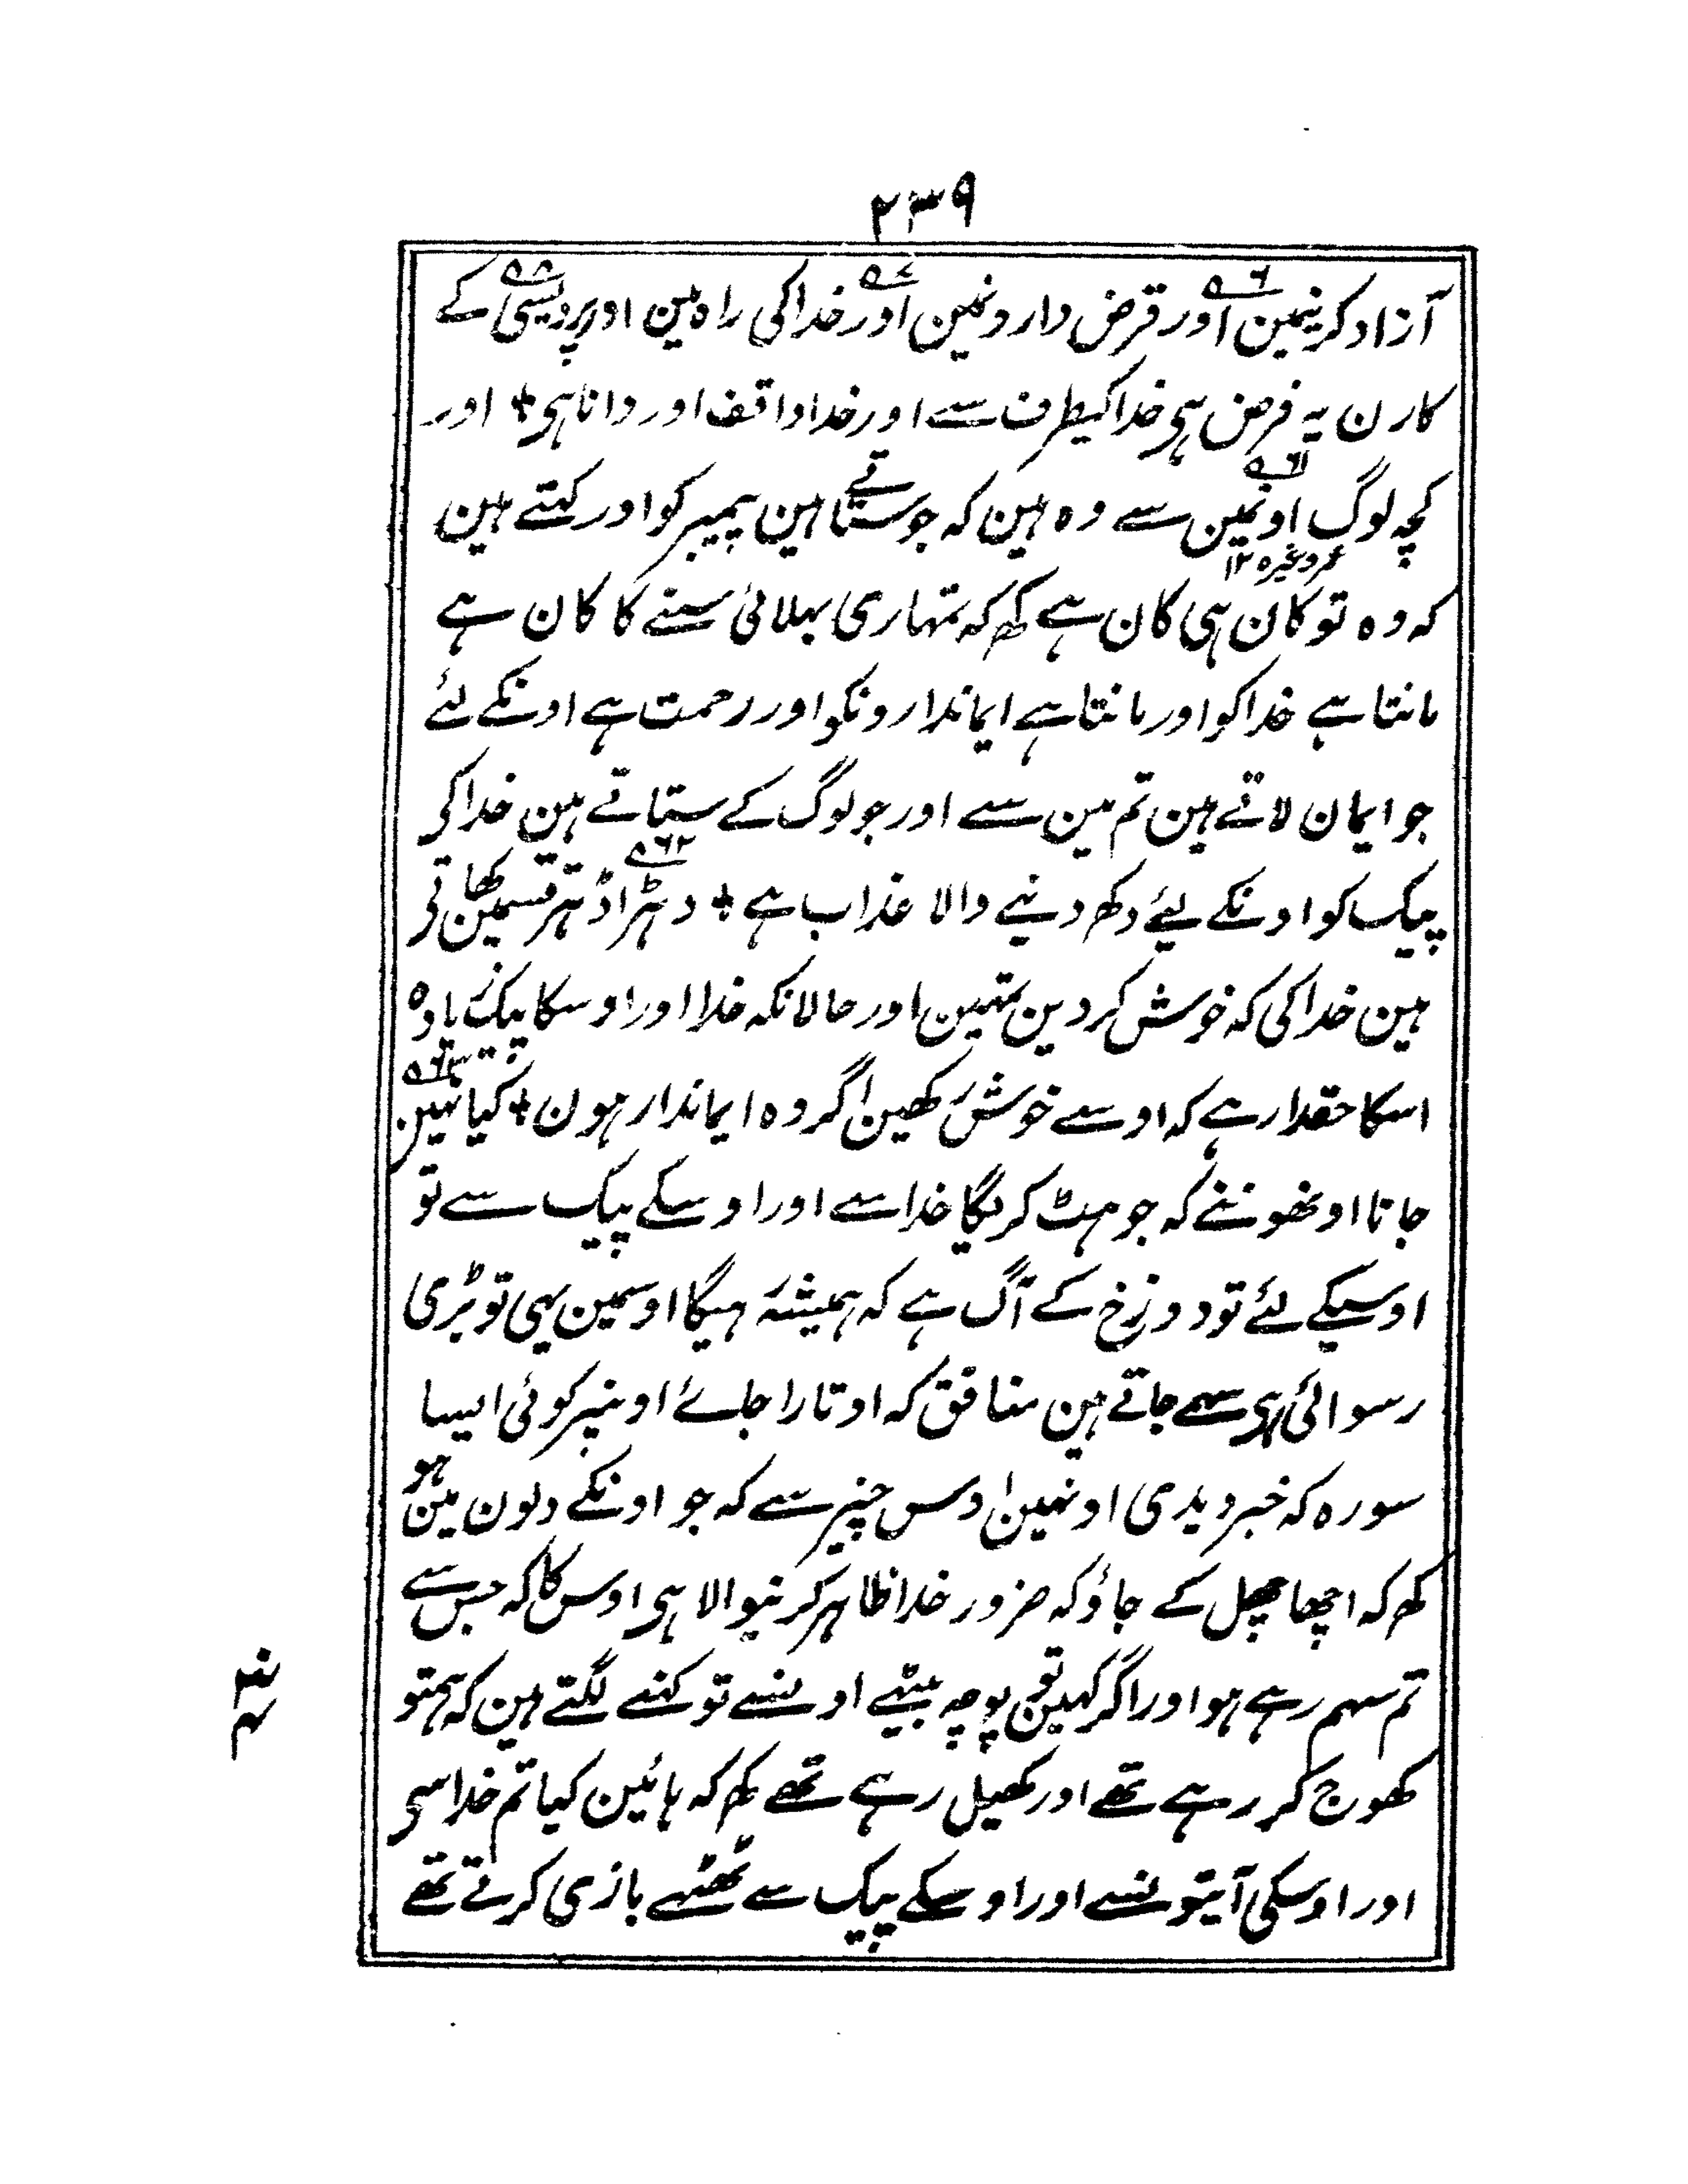 ۲۳۹
آزاد کرنیمین اور قرض دارونمین اور خدا کی راہ مین اور پردیسی کے
کارن یہ فرض ہی خدا کیطرف سے اور خدا واقف اور دانا ہی + اور
کچہ لوگ اونمین سے وہ ہین کہ جو ستاتے ہین پیمبر کو اور کہتے ہین
عمرو غیرہ ۱۲
کہ وہ تو کان ہی کان ہے کہہ کہ تمہاری بہلائی سننے کا کان ہے
مانتا ہے خدا کو اور مانتا ہے ایماندارونکو اور رحمت ہے اونکے لئے
جو ایمان لاتے ہین تم مین سے اور جو لوگ کے ستاتے ہین خدا کی
پیک کو اونکے لیئے دکھ دینے والا عذاب ہے + دہڑا دہڑ قسمین کھاتی
ہین خدا کی کہ خوش کردین تمہین اور حالانکہ خدا اور اوسکا پیک زیادہ
اسکا حقدار ہے کہ اوسے خوش رکھین اگر وہ ایماندار ہون + کیا نہین
جانا اونھوننے کہ جو ہٹ کریگا خدا سے اور اوسکے پیک سے تو
اوسیکے لئے تو دوزخ کے آگ ہے کہ ہمیشہ رہیگا اوسمین یہی تو بڑی
رسوائی ہی سہمے جاتے ہین منافق کہ اوتارا جائے اونپر کوئی ایسا
سورہ کہ خبر دیدی اونہین اوس چیز سے کہ جو اونکے دلون مین ہو
کہہ کہ اچھا چھل کے جاؤ کہ ضرور خدا ظاہر کرنیوالا ہی اوس کا کہ جس سے
تم سہم رہے ہو اور اگر کہین تو پوچہ بیٹھے اونسے تو کہنے لگتے ہین کہ ہمتو
کھوج کر رہے تھے اور کھیل رہے تھے کہہ کہ ہائین کیا تم خدا سی
اور اوسکی آیتونسے اور اوسکے پیک سے ٹھٹھے بازی کرتے تھے